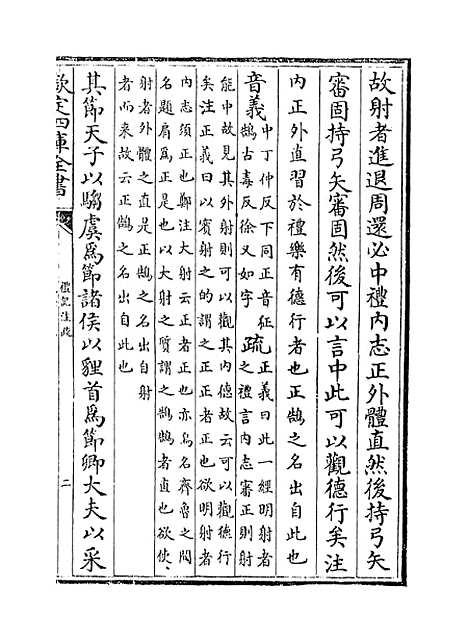 故射者進退周還必中禮内志正外體直然後持弓矢
審固持弓矢審固然後可以言中此可以觀德行矣注
内正外直習於禮樂有德行者也正鵠之名出自此也
音義中丁仲反下同正音征
鵠古毒反徐又如字疏正義曰此一經明射者
之禮言内志審正則射
能中故見其外射則可以觀其内德故云可以觀德行
矣注正義曰以賓射之的謂之正正者正也欲明射者
内志須正也鄭注大射云正者正也亦鳥名齊魯之間
名題肩為正是也以大射之質謂之鵠鵠者直也欲使
射者外體之直是正鵠之名出自射
者而來故云正鵠之名出自此也
其節天子以騶虞爲節諸侯以貍首爲節卿大夫以采
欽定四庫全書
禮記注疏
二